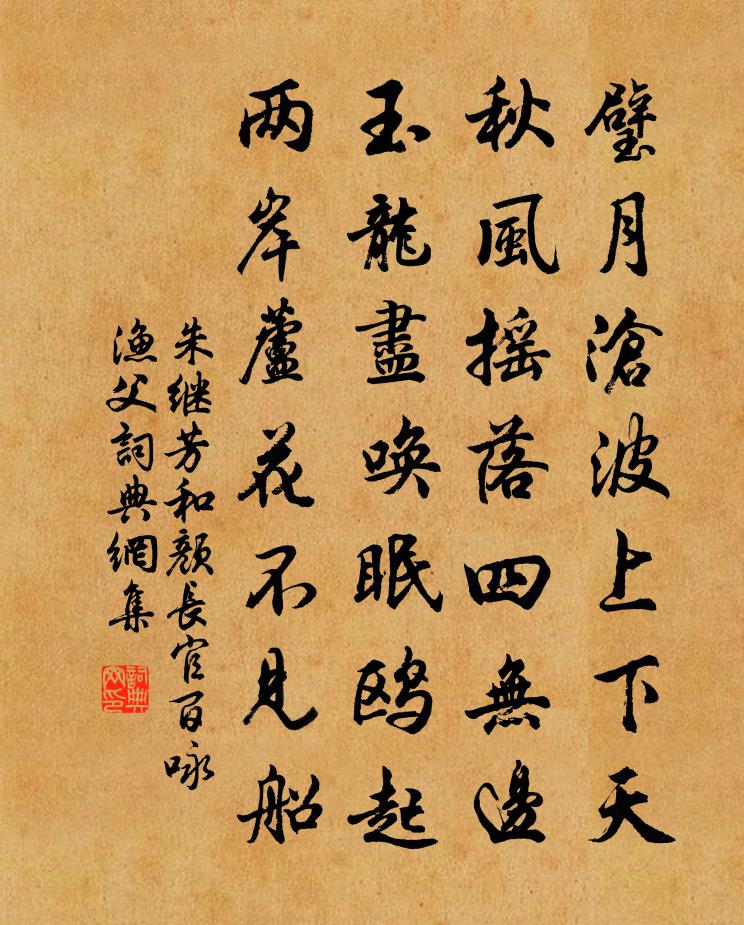 璧月滄波上下天
秋風摇落四無邊
玉龍盡唤眠鸥起
两岸蘆花不見船
朱继芳和颜長官百咏
渔父詞典網集
詞典网印